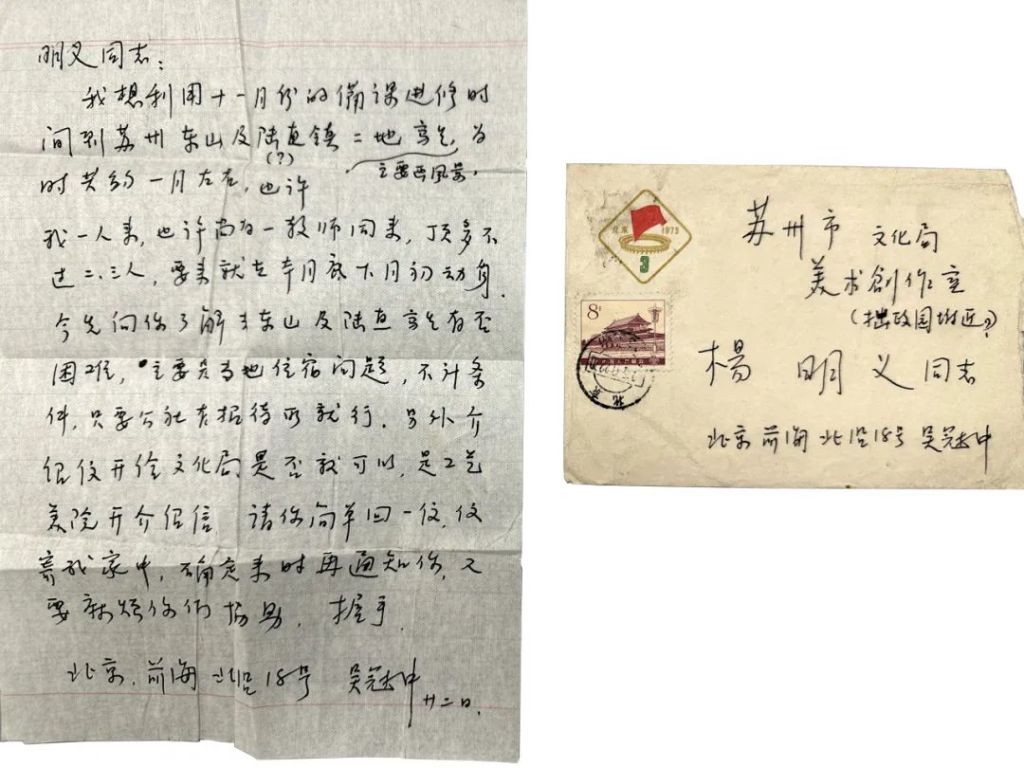 明义同志：
我想利用十一月份的备课进修时
间到苏州东山及陆直镇二地写生，为
(?)
主要画风景，
时共约一月左右，也许
我一人来，也许尚有一教师同来，顶多不
过二、三人，要来就在本月底下月初动身，
今先向你了解去东山及陆直写生有否
困难，主要是当地住宿问题，不计条
件，只要公社有招待所就行。另外介
绍信开给文化局是否就可以，是工艺
美院开介绍信 请你简单回一信，信
寄我家中，确定来时再通知你，又
要麻烦你们协助， 握手．
北京．前海北沿18号 吴冠中
廿二日．
北京 1973
3
8分
中国人民邮政
北京
苏州市 文化局
美术創作室
(拙政园附近?)
楊 明义同志
北京前海北沿18号 吴冠中